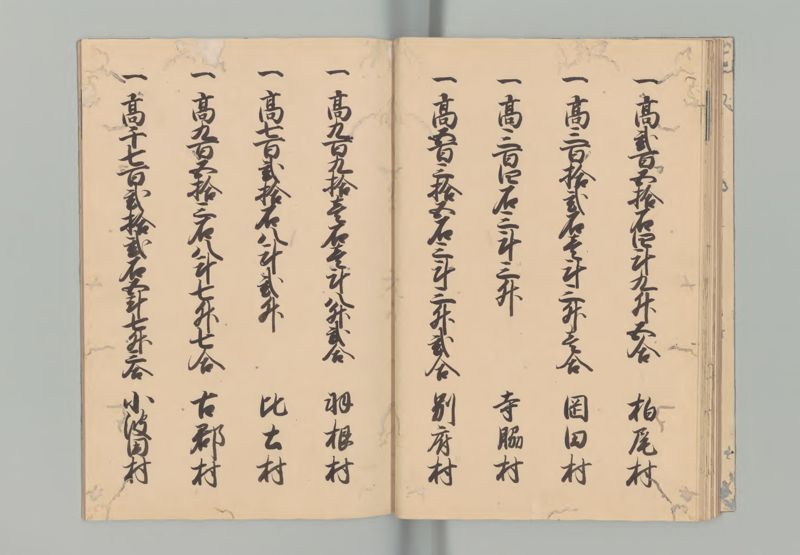 一高弐百五拾石四斗九升五合 柏尾村
一高三百拾弐石壱斗三升三合 岡田村
一高三百四石三斗三升 寺脇村
一高五百三拾五石三斗三升弐合 別府村
一高九百九拾壱石壱斗八升弐合 羽根村
一高七百弐拾石八斗弐升 比土村
一高九百五拾三石八斗七升七合 古郡村
一高千七百弐拾弐石五斗七升三合 小波田村